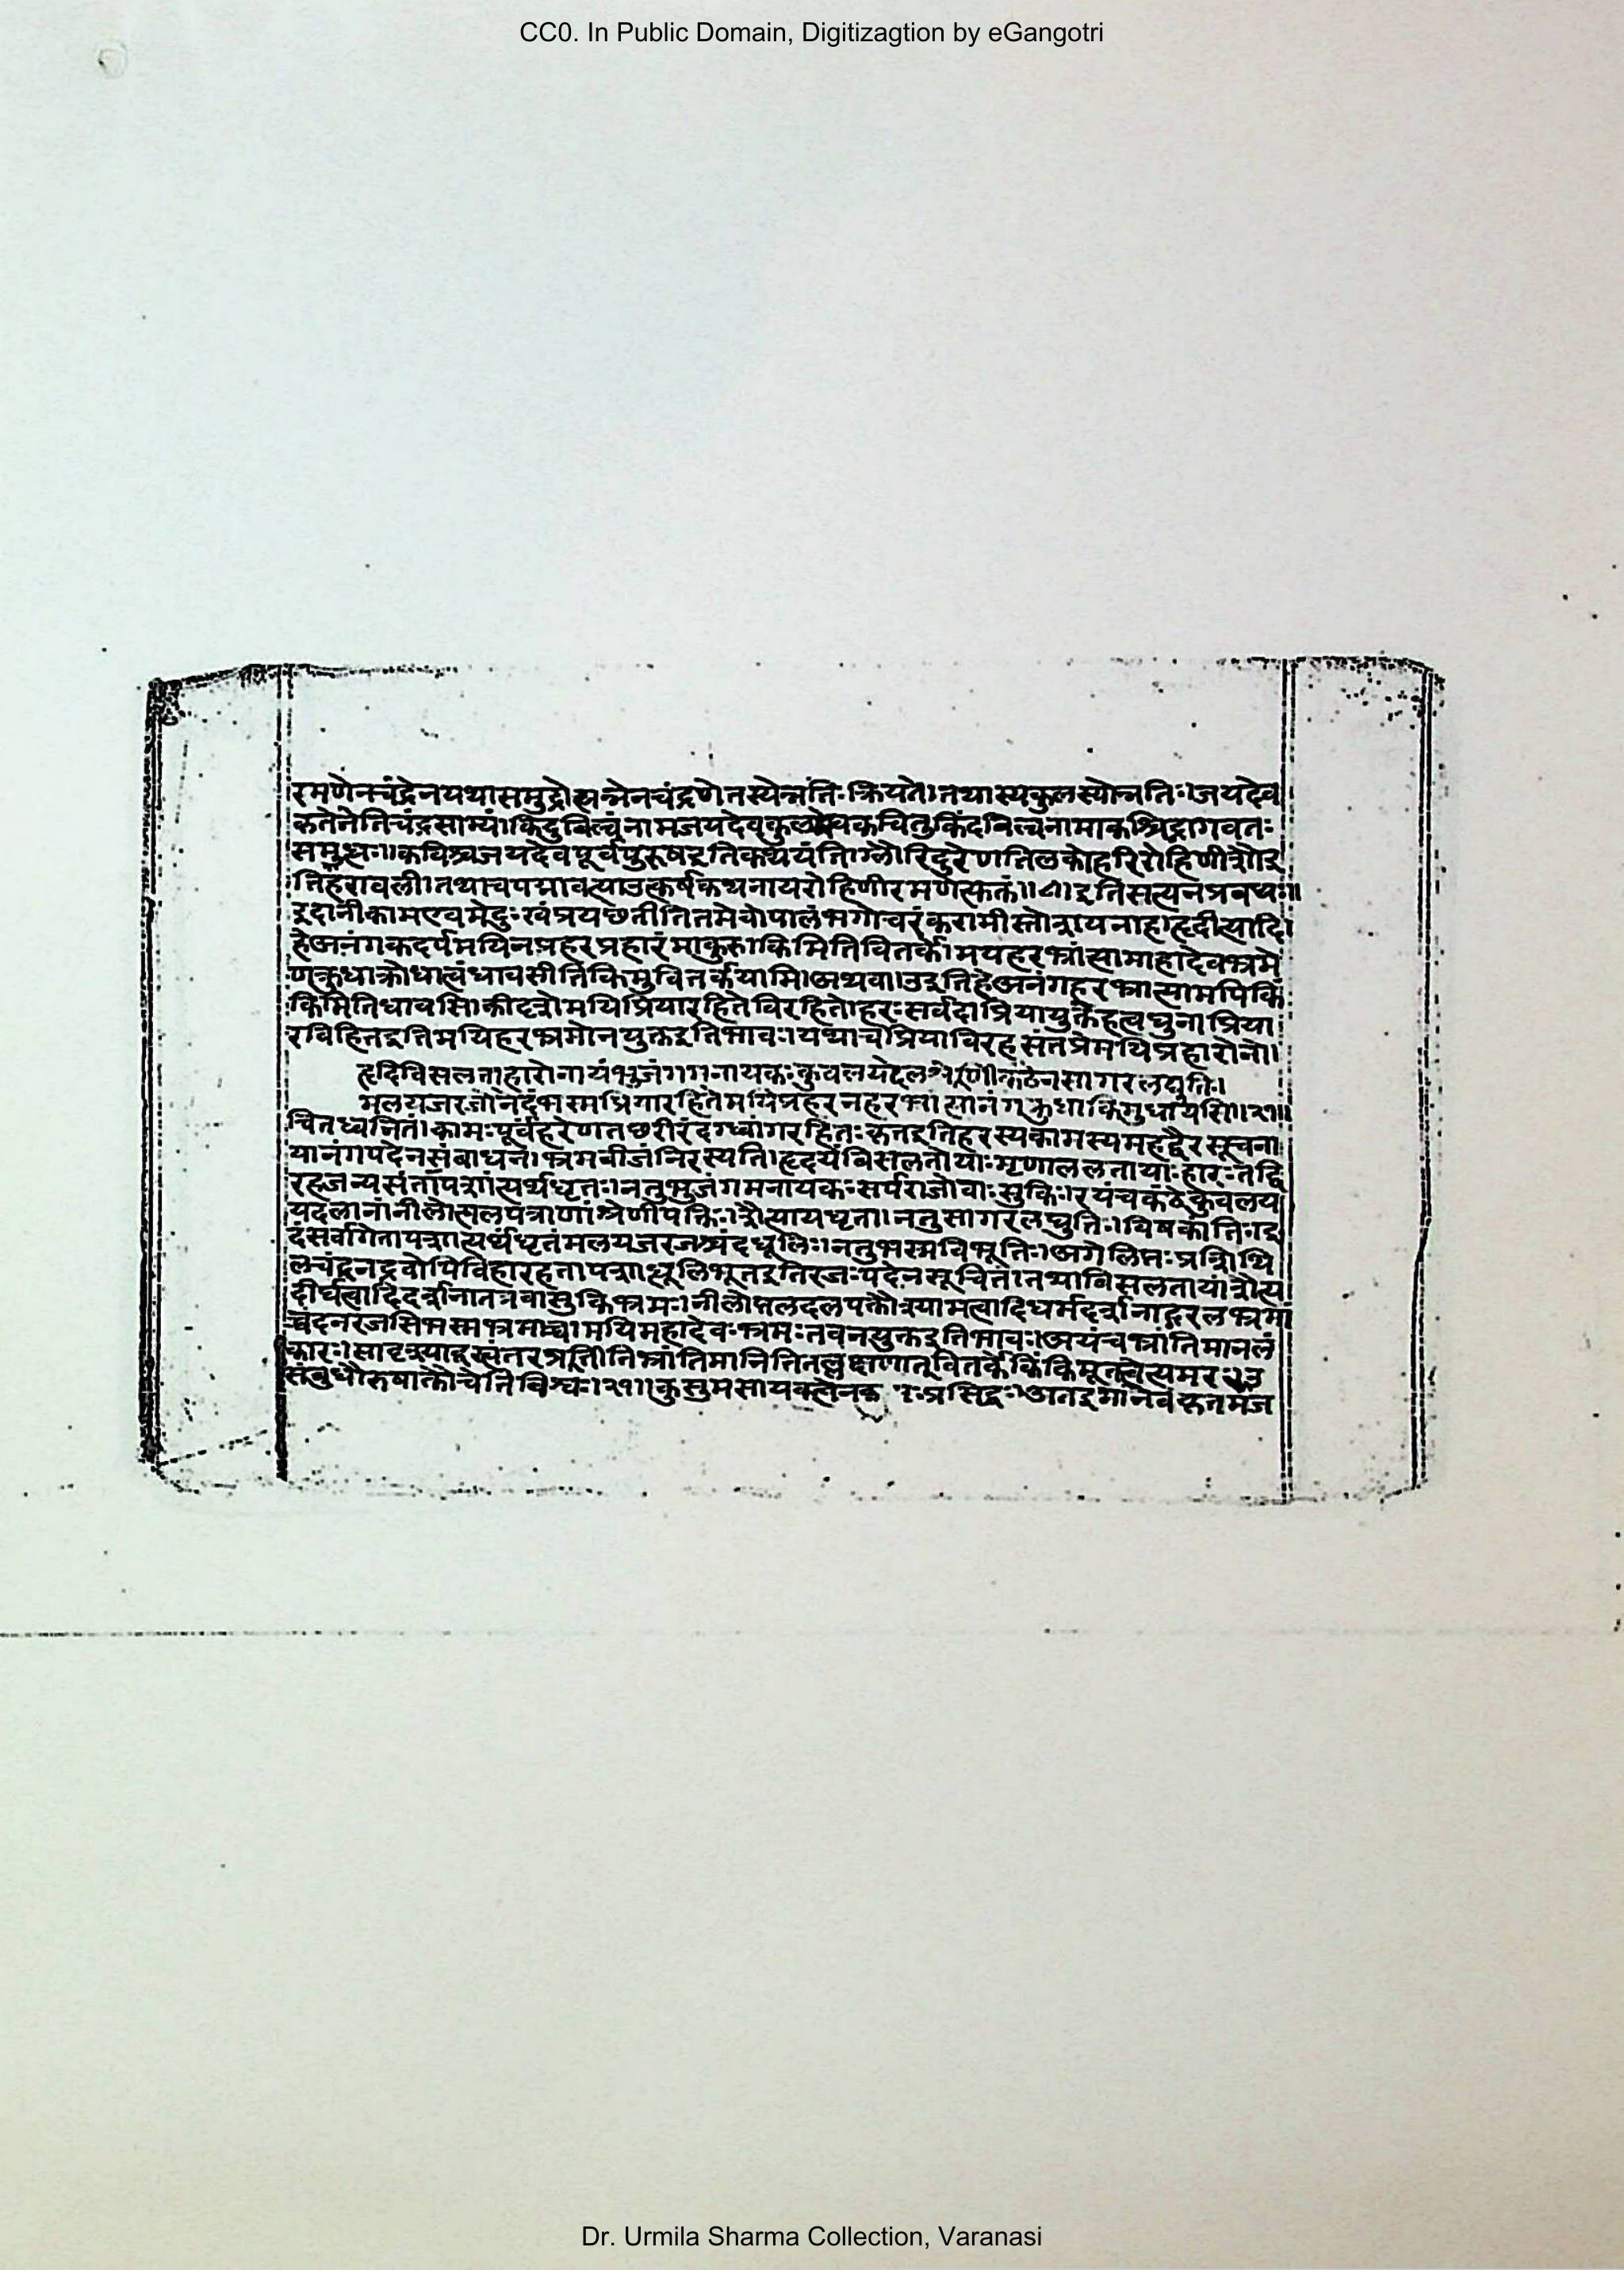 CC0. In Public Domain, Digitizagtion by eGangotri
रमणेनचंद्रेनयथासमुद्रोत्पन्नेनचंद्रणेतस्येन्नतिःक्रियते।तथास्यकुलस्योन्नतिः।जयदेव
कतेनेतिचंद्रसाम्यं।किंदुबिल्वंनामजयदेवकुलं क्वचित्तुकिंदबिल्वनामाकश्चिद्भागवतः
समुत्पन्नः।कविश्चजयदेवपूर्वपुरुषइतिकथयंति।ग्लौरिंदुरेणतिलकोहरिरोहिणीशौइ
तिहरावली।तथाचपद्मावत्याउत्कर्षकथनायरोहिणीरमणेत्फक्तं॥८।इतिसत्यनप्रबधः॥
इदानीकामएवमेदुःखंप्रयछतीतितमेवोपालंभगोचरंकरामीस्तोत्रायनाह।हृदीत्यादि।
हेअनंगकदर्पमयिनप्रहरप्रहारंमाकुरु।किमितिवितर्के।मयहरभ्रांसामाहादेवभ्रमे
णक्रुधाक्रौधात्वंधावसीतिकिमुवितर्कयामि।अथवा।उइतिहेअनंगहरभ्रात्सामपिकिं
किमितिधावसि।कीदृशेमयिप्रियारहितेविरहिते।हरःसर्वदाप्रियायुक्तेहत्वघुनाप्रिया
रविहितइतिमयिहरभ्रमोनयुक्तइतिभावः।यथाचप्रियाविरहसंतप्तेमयिप्रहारोनो।
हृदिविसलताहारोनायंभुजंगमनायकःकुवलयदलश्रेणीकंठेनसागरलद्युतिः।
मलयजरजोनेदंभस्मप्रियारहितेमयिप्रहरनहरभ्रांत्यानंगक्रुधाकिमुधावसि॥२१॥
चितध्वनितं।कामःपूर्वंहरेणतछरीरंदग्ध्वांगरहितःकृतइतिहरस्यकामस्यमहद्वैरसूचना
यानंगपदेनसंबाधनं।भ्रमबीजंनिरस्यति।हृदयेबिसलतायाःमृणाललतायाःहारःतद्वि
रहजन्यसंतापशांत्यर्थंधृतः।नतुभुजंगमनायकःसर्पराजोवासुकिः।इयंचकंठेकुवलय
यदलानांनीलोत्पलपत्राणांश्रेणीपंक्तिःशैत्यायधृता।नतुसागरलद्युतिः।विषकांतिः।इ
दंसर्वांगतापशांत्यर्थंधृतंमलयजरजश्चंदधूलिः।नतुभस्मविभूतिः।अंगेलिप्तःप्रशिथि
लचंद्रनद्रवोपिविहारहतापशाधूलिभूतइतिरजःपदेनसूचितं।तथाविसलतायांशैत्य
दीर्घत्वादिदर्शनात्तत्रवासुकिभ्रमः।नीलोत्पलदलपंक्तौश्यामत्वादिधर्मदर्शनाद्गरलभ्रमा
चदनरजसिभस्मभ्रमाच्चामयिमहादेवःभ्रमःतवनयुक्तइतिभावः।अयंचभ्रांतिमानलं
कारः।सादृश्याद्वस्त्वंतरप्रतीतिभ्रांतिमानितितल्लक्षणात्वितर्केकिंकिमूतत्वेत्यमरः२३
संबुधौरुषोक्तौचेतिविश्वः।२१॥कुसुमसायकत्वेनक रःप्रसिद्धः।अतइमानेवकृतमंज
Dr. Urmila Sharma Collection, Varanasi